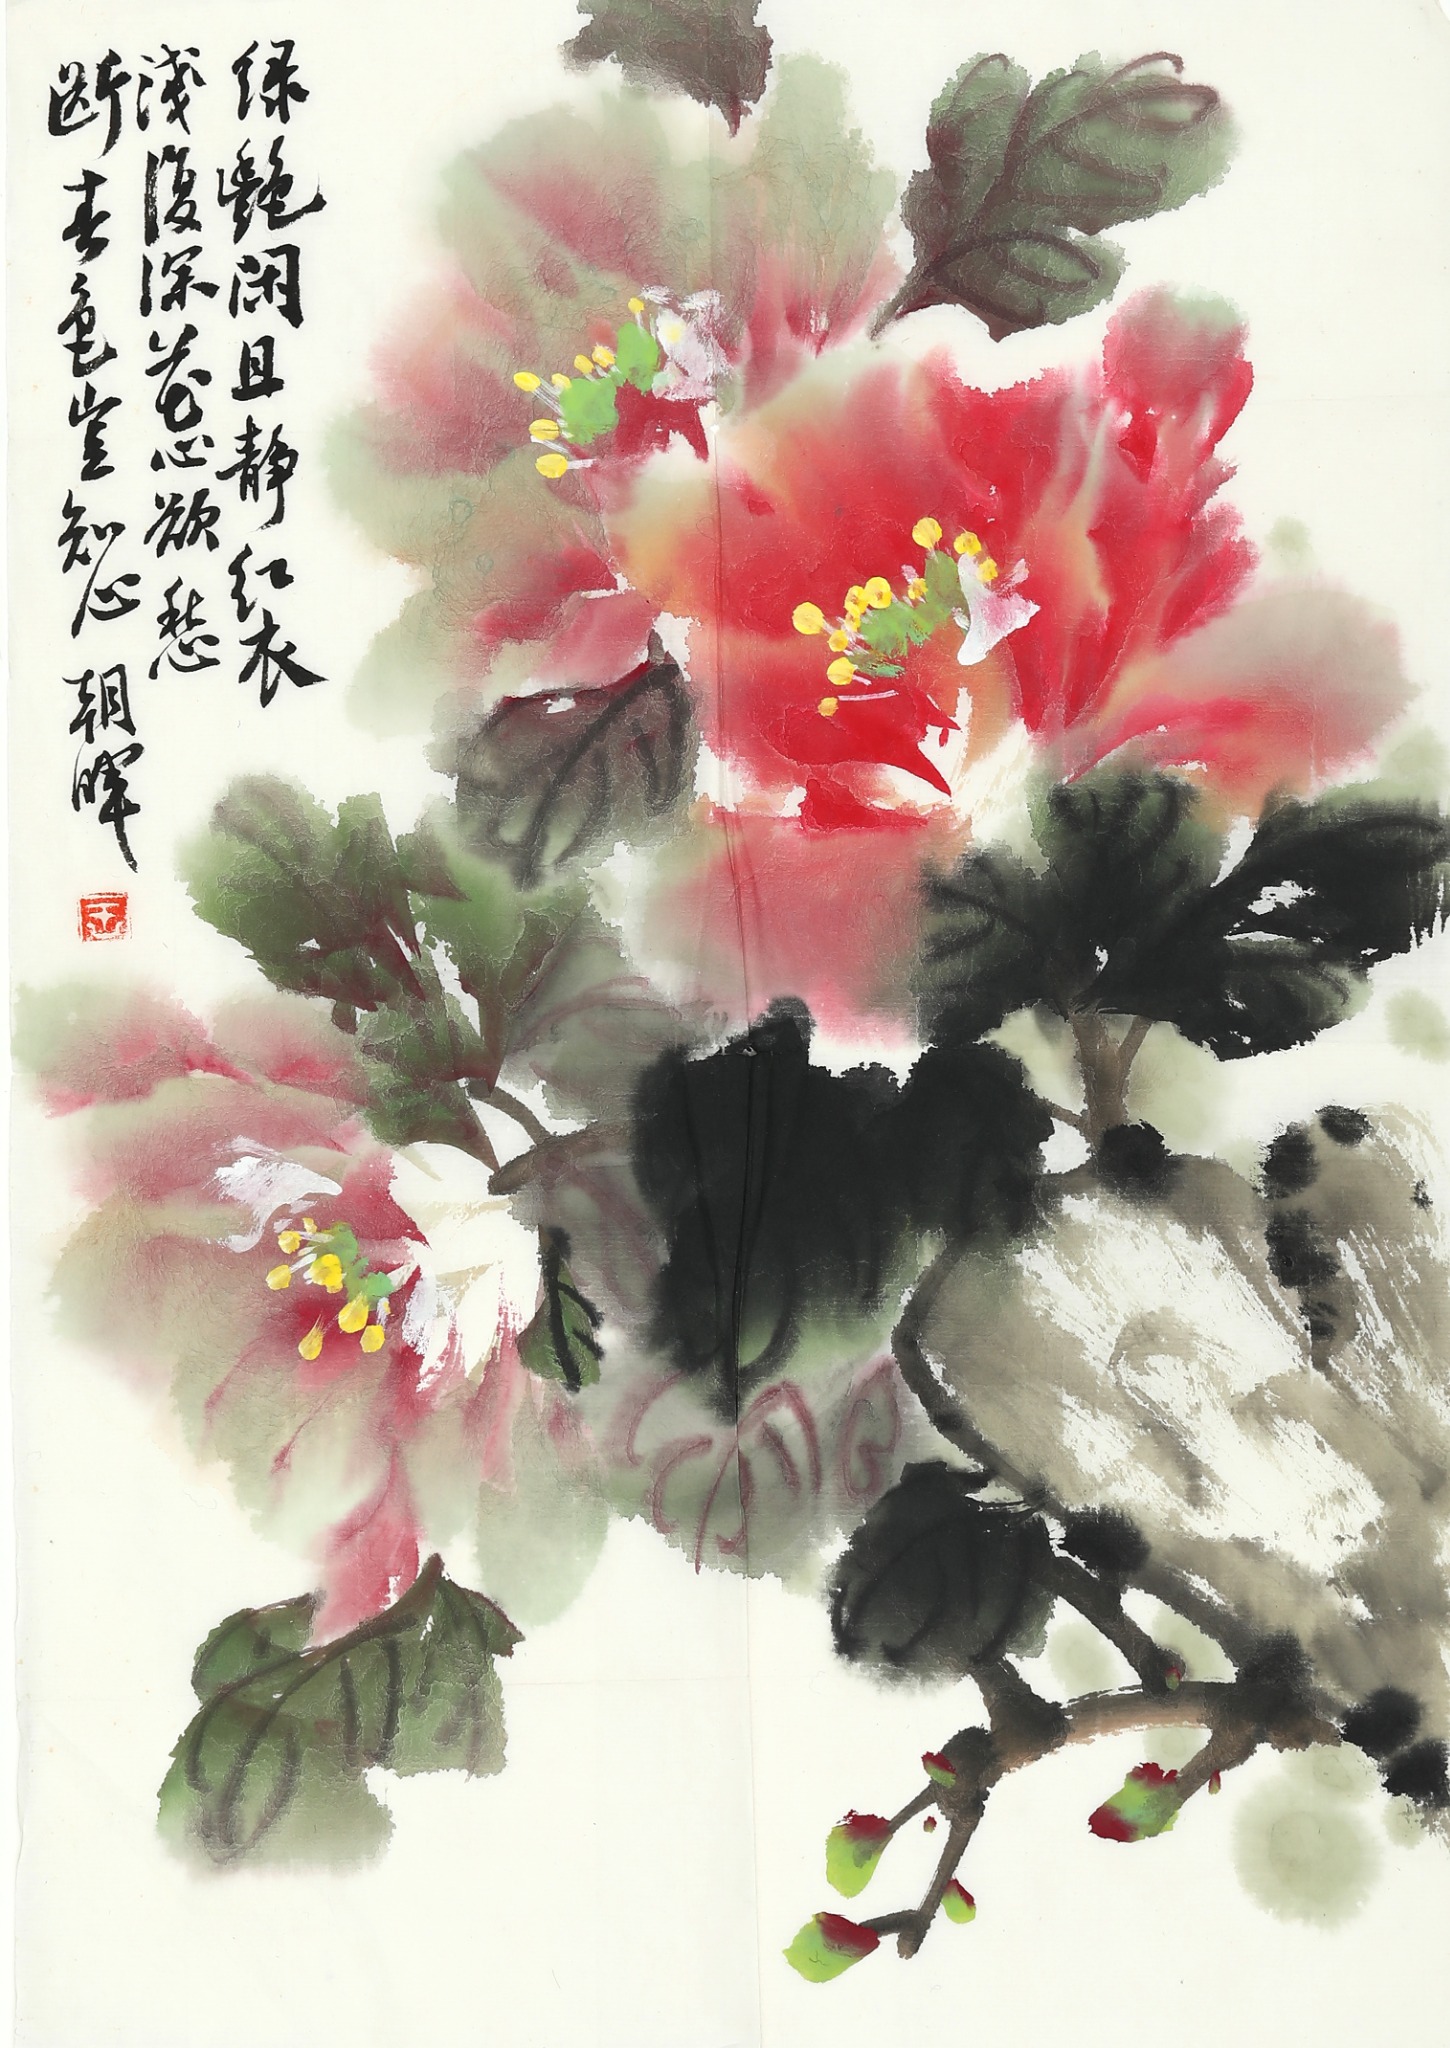 绿艶闲且静红衣
浅复深花心欲愁
断春色岂知心 朝晖